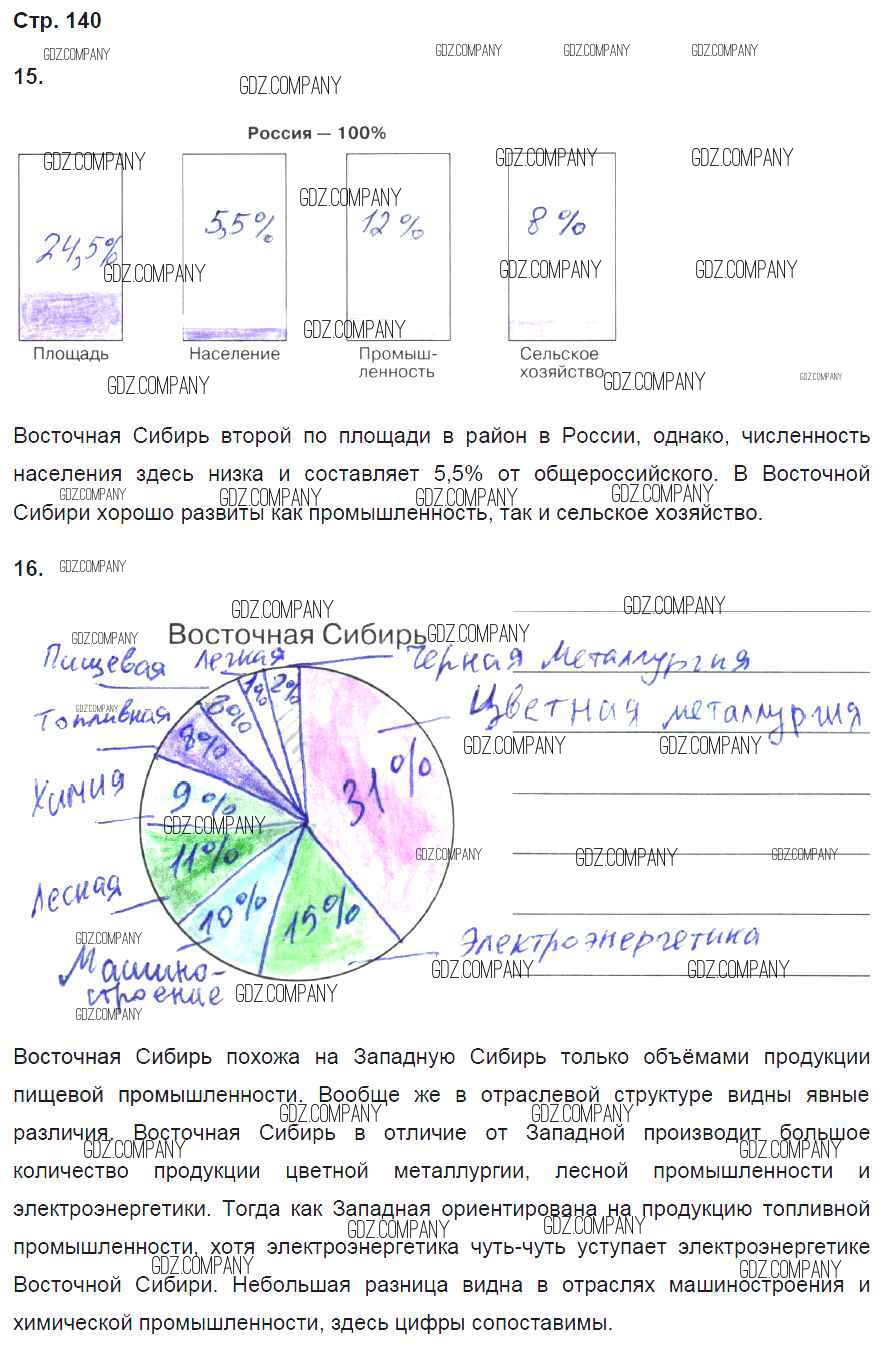 Стр. 140
GDZ.COMPANY GDZ.COMPANY GDZ.COMPANY GDZ.COMPANY
15.
GDZ.COMPANY
Россия — 100%
GDZ.COMPANY GDZ.COMPANY GDZ.COMPANY
GDZ.COMPANY
24,5% 5,5% 12% 8%
GDZ.COMPANY GDZ.COMPANY GDZ.COMPANY
GDZ.COMPANY
Площадь Население Промыш- Сельское
ленность хозяйство
GDZ.COMPANY GDZ.COMPANY GDZ.COMPANY
Восточная Сибирь второй по площади в район в России, однако, численность
населения здесь низка и составляет 5,5% от общероссийского. В Восточной
GDZ.COMPANY GDZ.COMPANY GDZ.COMPANY GDZ.COMPANY
Сибири хорошо развиты как промышленность, так и сельское хозяйство.
16. GDZ.COMPANY
GDZ.COMPANY GDZ.COMPANY
GDZ.COMPANY Восточная Сибирь GDZ.COMPANY
Пищевая Легкая Черная металлургия
1% 2%
GDZ.COMPANY 6% Цветная металлургия
Топливная 8%
GDZ.COMPANY GDZ.COMPANY
31%
Химия 9%
GDZ.COMPANY
11% GDZ.COMPANY GDZ.COMPANY GDZ.COMPANY
Лесная
10% 15%
GDZ.COMPANY Электроэнергетика
Машино-
строение
GDZ.COMPANY GDZ.COMPANY GDZ.COMPANY
GDZ.COMPANY
Восточная Сибирь похожа на Западную Сибирь только объёмами продукции
пищевой промышленности. Вообще же в отраслевой структуре видны явные
GDZ.COMPANY GDZ.COMPANY
различия. Восточная Сибирь в отличие от Западной производит большое
GDZ.COMPANY GDZ.COMPANY
количество продукции цветной металлургии, лесной промышленности и
электроэнергетики. Тогда как Западная ориентирована на продукцию топливной
GDZ.COMPANY GDZ.COMPANY
промышленности, хотя электроэнергетика чуть-чуть уступает электроэнергетике
GDZ.COMPANY GDZ.COMPANY
Восточной Сибири. Небольшая разница видна в отраслях машиностроения и
химической промышленности, здесь цифры сопоставимы.